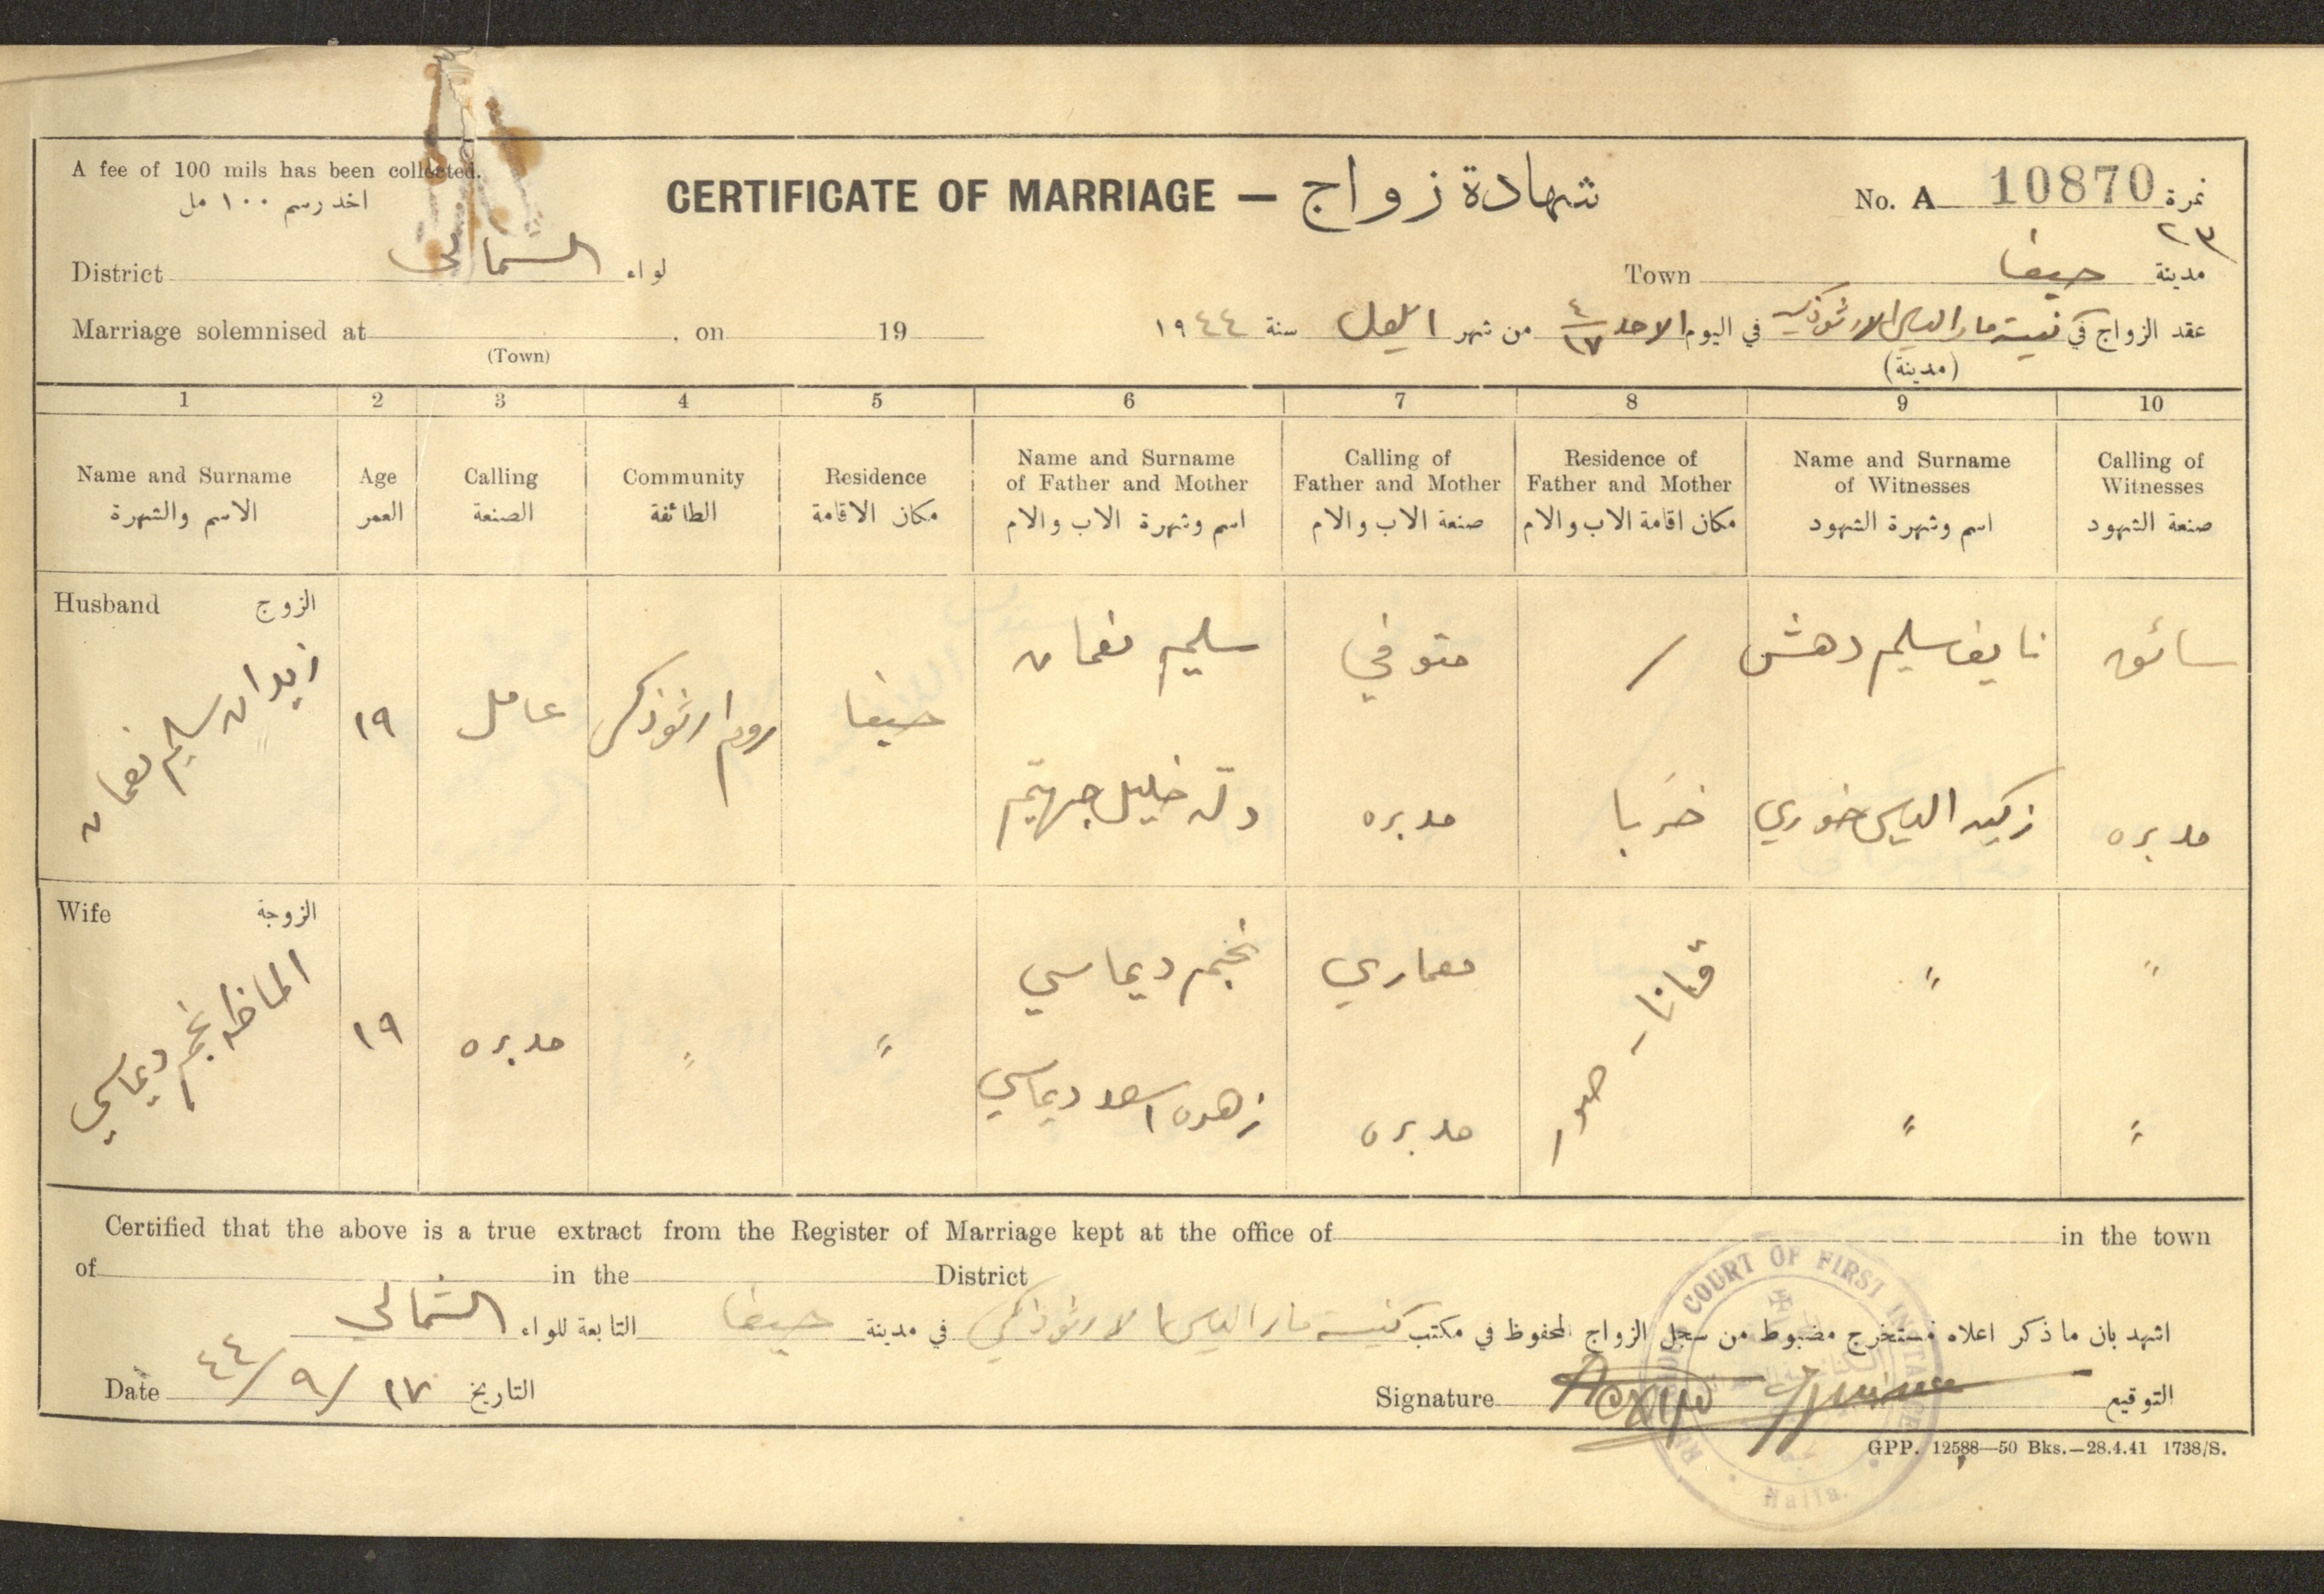 A fee of 100 mils has been collected.
اخذ رسم ١٠٠ مل
CERTIFICATE OF MARRIAGE — شهادة زواج
No. A 10870 نمرة
٢٣
District الشمالي لواء
Town حيفا مدينة
Marriage solemnised at , on 19
(Town)
عقد الزواج في كنيسة مار الياس الارثوذكسية في اليوم الاحد ٤/١٧ من شهر ايلول سنة ١٩٤٤
(مدينة)
1 2 3 4 5 6 7 8 9 10
Name and Surname الاسم والشهرة
Age العمر
Calling الصنعة
Community الطائفة
Residence مكان الاقامة
Name and Surname of Father and Mother اسم وشهرة الاب والام
Calling of Father and Mother صنعة الاب والام
Residence of Father and Mother مكان اقامة الاب والام
Name and Surname of Witnesses اسم وشهرة الشهود
Calling of Witnesses صنعة الشهود
Husband الزوج
زيدان سليم نعمان
١٩
عامل
روم ارثوذكس
حيفا
سليم نعمان
متوفي
/
نايف سليم دهش
سائق
خليل
مدبره
خربا
زكيه الياس خوري
مدبره
Wife الزوجة
الماظه نجم ديماسي
١٩
مدبره
"
"
نجم ديماسي
معماري
قانا - صور
"
"
زهره اسعد ديماسي
مدبره
"
"
Certified that the above is a true extract from the Register of Marriage kept at the office of in the town
of in the District
اشهد بان ما ذكر اعلاه مستخرج مضبوط من سجل الزواج المحفوظ في مكتب كنيسة مار الياس الارثوذكسي في مدينة حيفا التابعة للواء الشمالي
Date ١٧/٩/٤٤ التاريخ
Signature التوقيع
COURT OF FIRST INSTANCE
Haifa.
GPP. 12588—50 Bks.—28.4.41 1738/S.